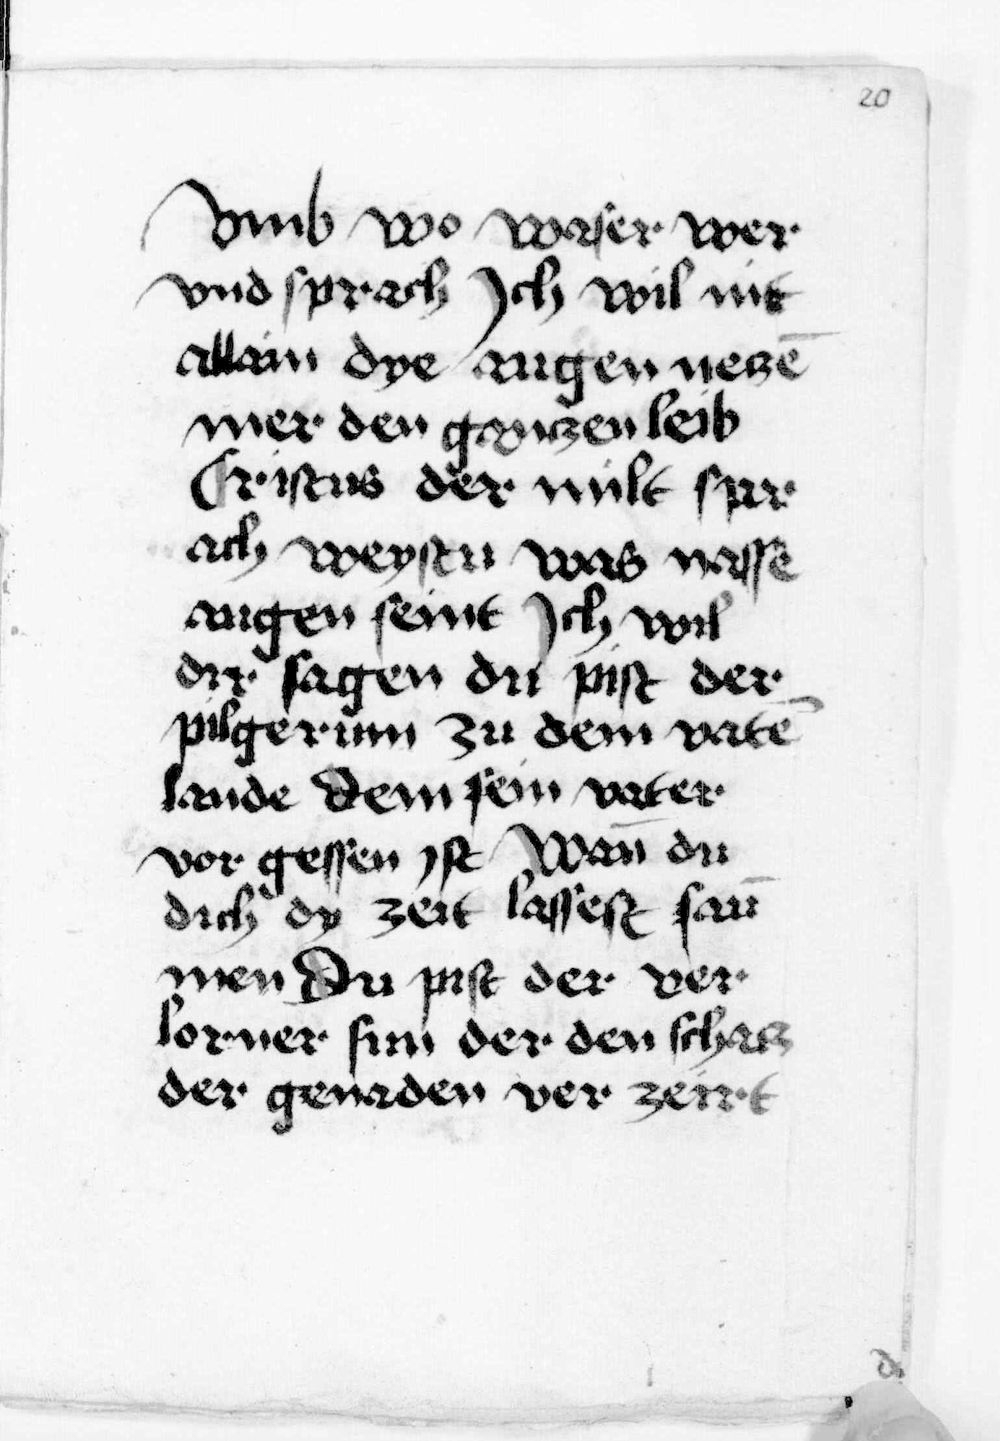 20
vmb wo waser wer
vnd sprach Ich wil nit
allain dye augen neczē
mer den ganczen leib
Cristus der milt spr
ach weystu was nasse
augen seint Ich wil
dir sagen du pist der
pilgerim zu dem vatē
lande dem sein vater
vor gessen ist Wan̄ du
dich dy zeit lassest sau̅
men Du pist der ver
lorner sun der den schacz
der genaden ver zeirt
d